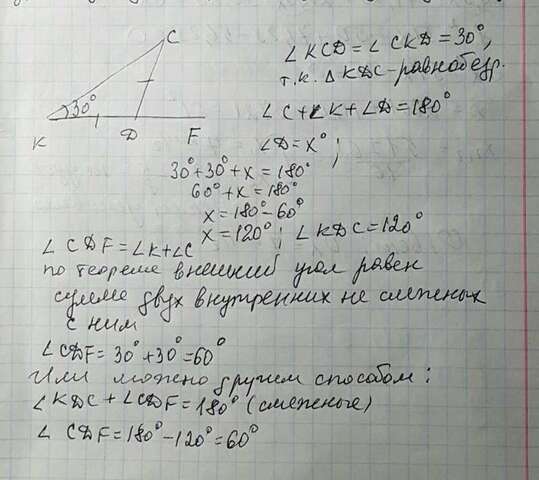 C
30°
K D F
∠KCD = ∠CKD = 30°,
т.к. Δ KDC - равнобедр.
∠C + ∠K + ∠D = 180°
∠D = x° ;
30° + 30° + x = 180°
60° + x = 180°
x = 180° - 60°
x = 120° ; ∠KDC = 120°
∠CDF = ∠K + ∠C
по теореме внешний угол равен
сумме двух внутренних не смежных
с ним
∠CDF = 30° + 30° = 60°
Или можно другим способом:
∠KDC + ∠CDF = 180° (смежные)
∠CDF = 180° - 120° = 60°